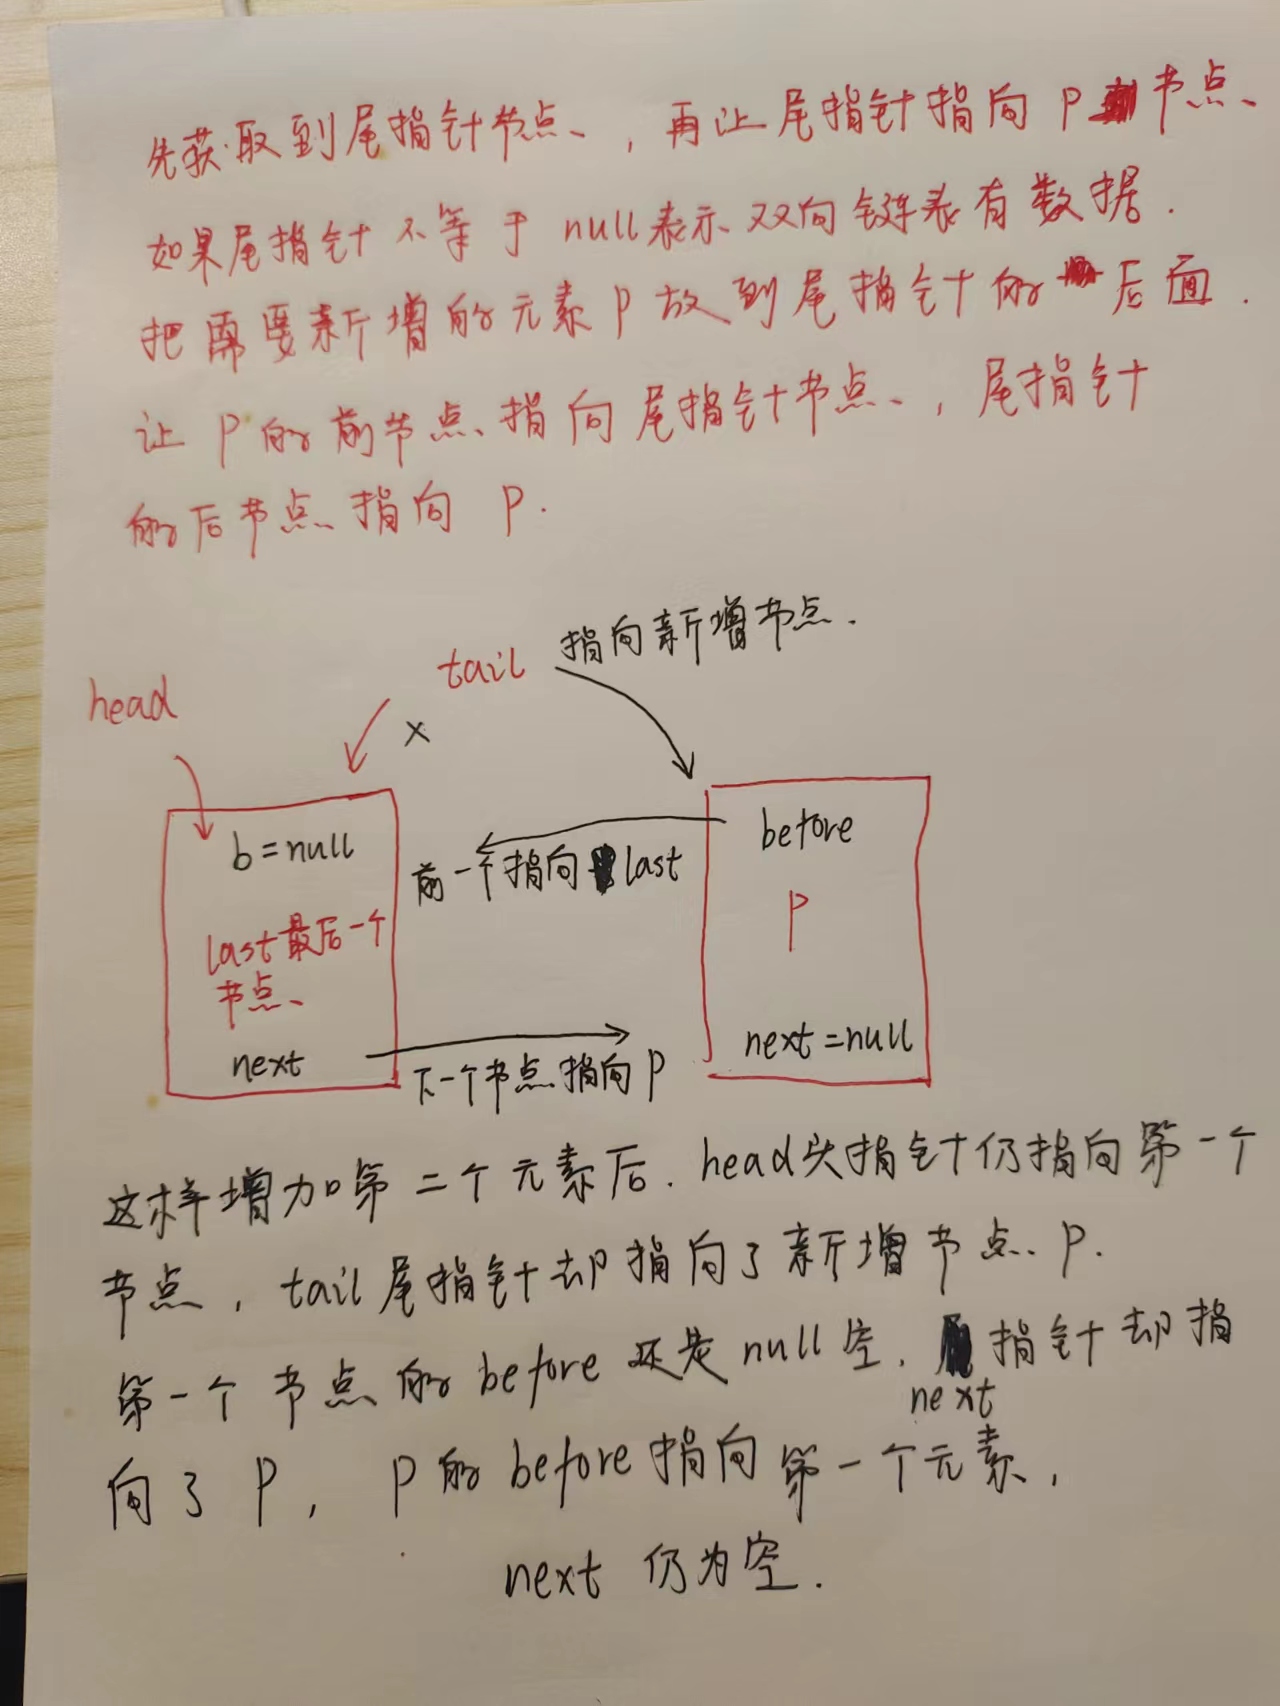 先获取到尾指针节点、，再让尾指针指向 P 节点、
如果尾指针不等于 null表示双向链表有数据.
把需要新增的元素P放到尾指针的后面.
让 P的前节点、指向尾指针节点、，尾指针
的后节点、指向 P.
tail 指向新增节点.
head
x
b=null
before
前一个指向last
P
last最后一个
节点、
next=null
next
下一个节点指向P
这样增加第二个元素后. head头指针仍指向第一个
节点，tail尾指针却指向了新增节点、P.
第一个节点的before还是null空. 指针却指
next
向了 P, P的before指向第一个元素，
next 仍为空.